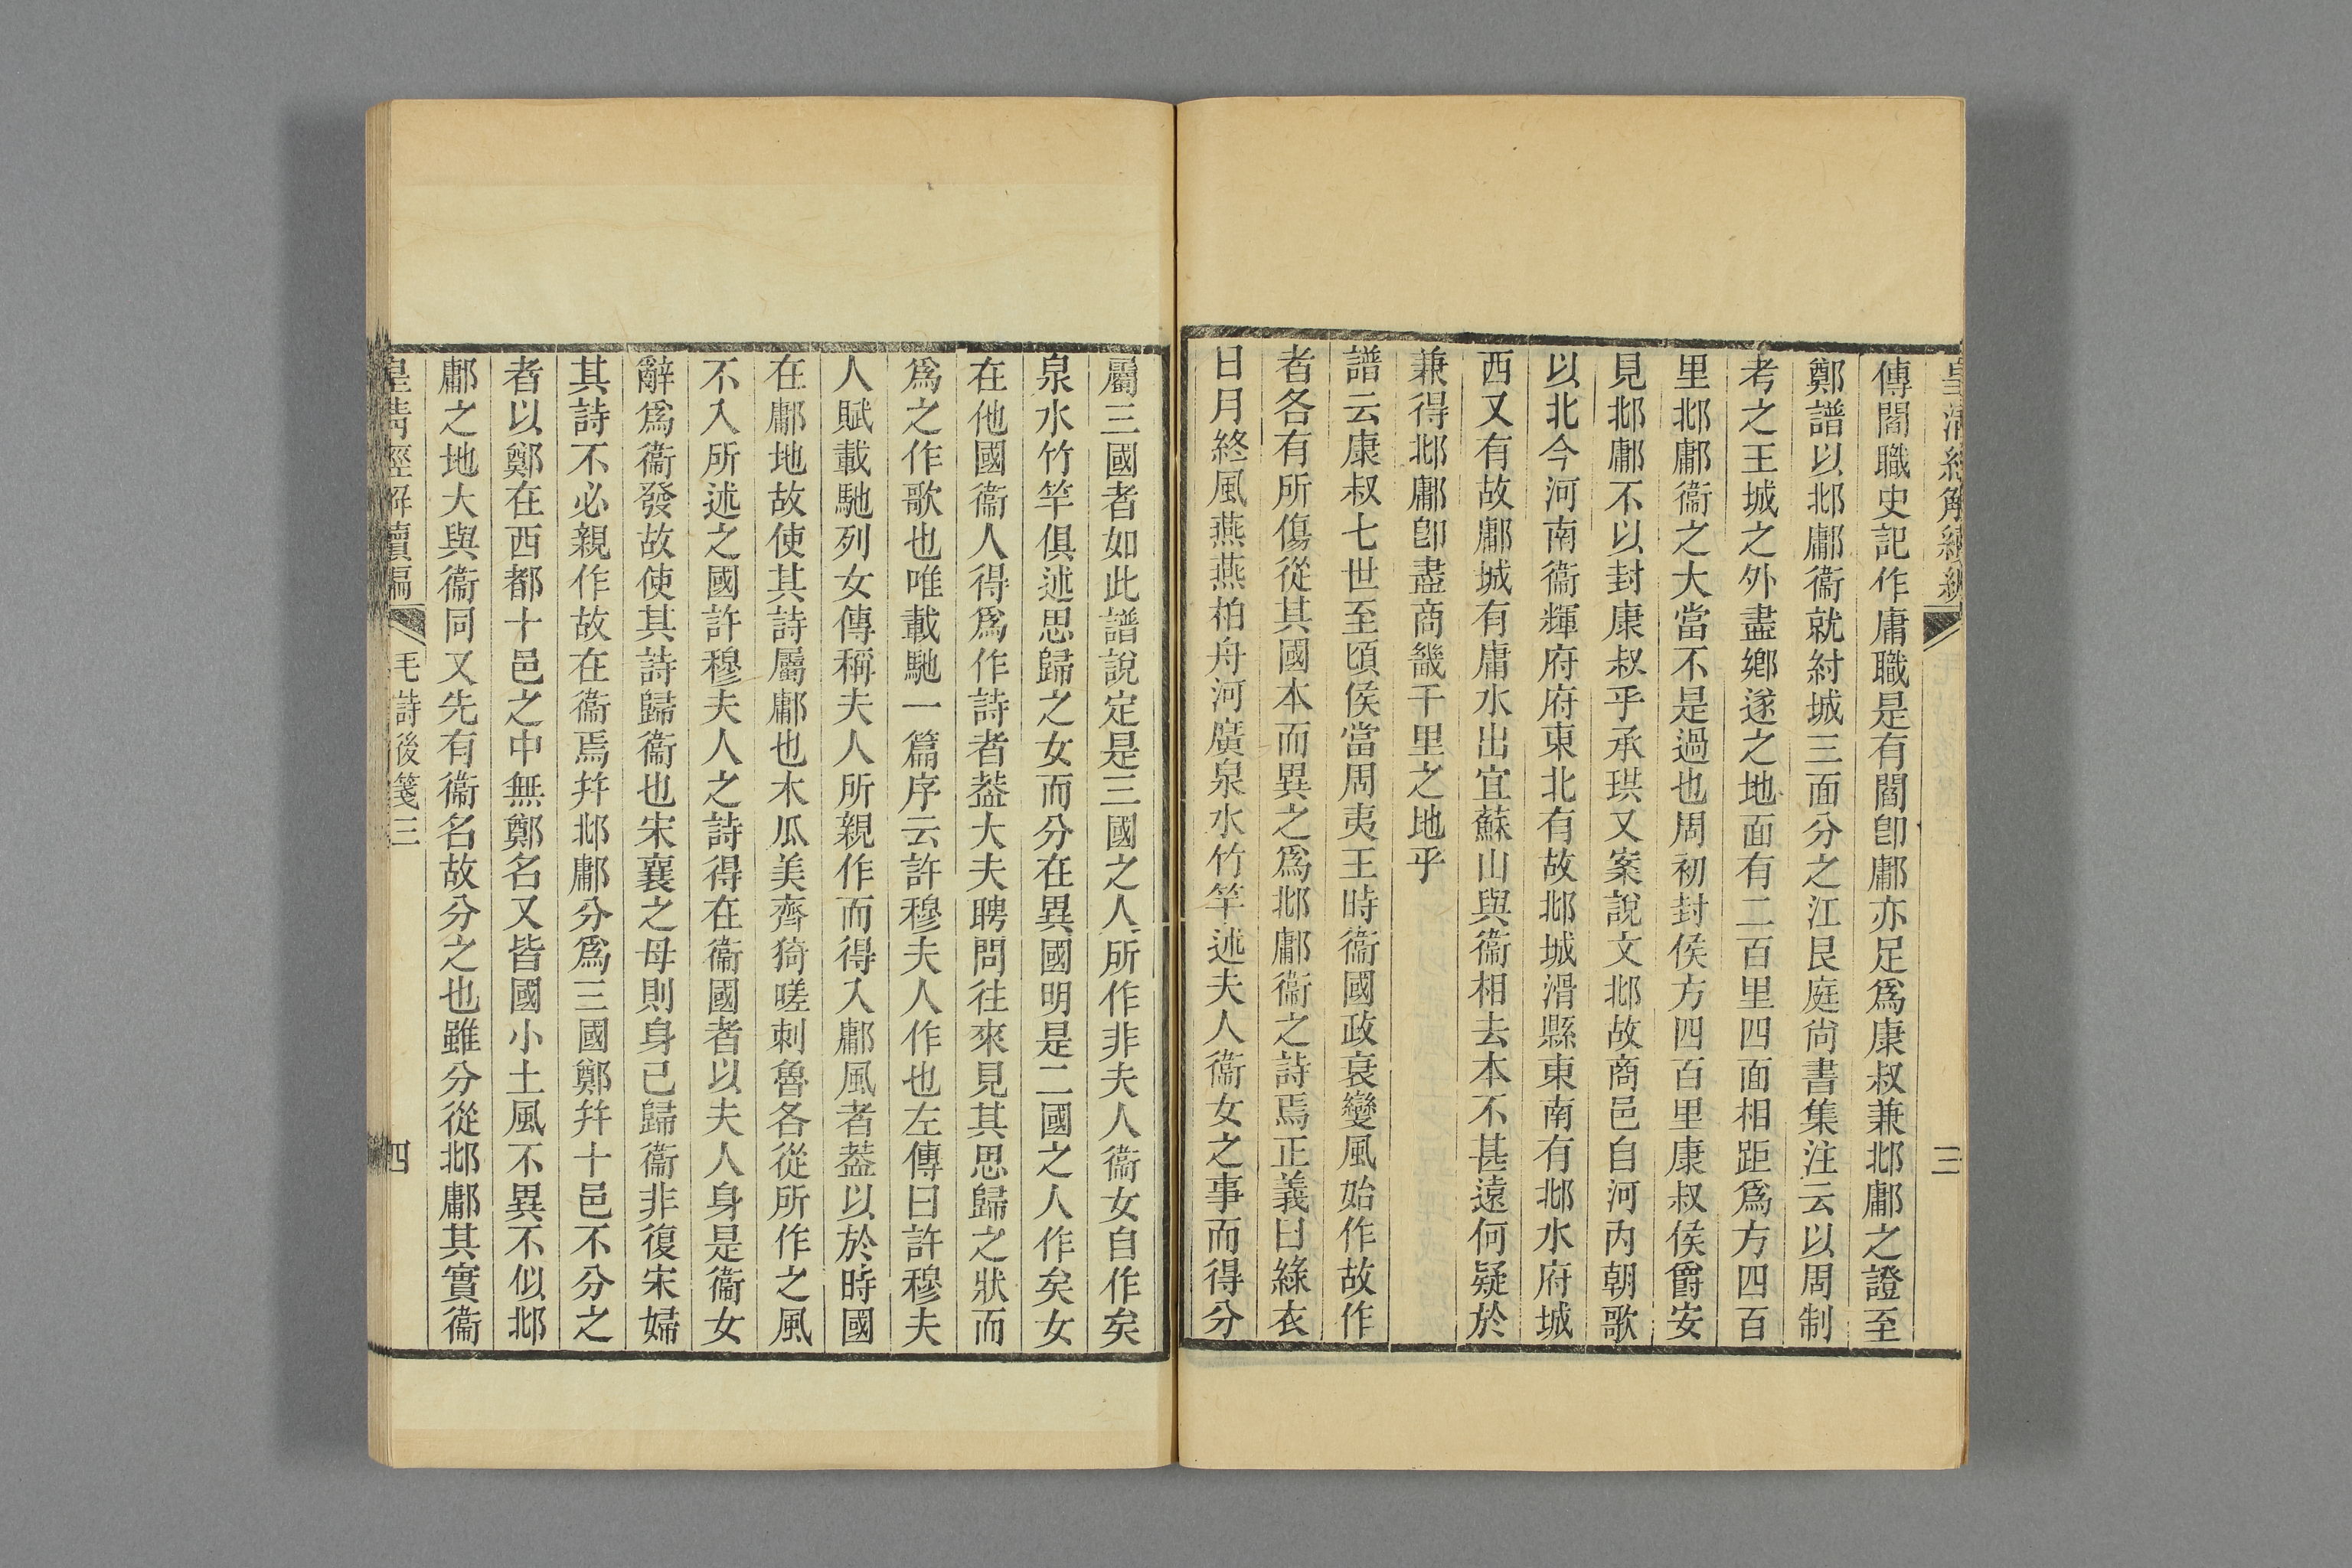 皇清經解續編
三
傳閻職史記作庸職是有閻卽鄘亦足爲康叔兼邶鄘之證至
鄭譜以邶鄘衞就紂城三面分之江艮庭尙書集注云以周制
考之王城之外盡鄕遂之地面有二百里四面相距爲方四百
里邶鄘衞之大當不是過也周初封侯方四百里康叔侯爵安
見邶鄘不以封康叔乎承珙又案說文邶故商邑自河內朝歌
以北今河南衞輝府府東北有故邶城滑縣東南有邶水府城
西又有故鄘城有庸水出宜蘇山與衞相去本不甚遠何疑於
兼得邶鄘卽盡商畿千里之地乎
譜云康叔七世至頃侯當周夷王時衞國政衰變風始作故作
者各有所傷從其國本而異之爲邶鄘衞之詩焉正義曰綠衣
日月終風燕燕柏舟河廣泉水竹竿述夫人衞女之事而得分
屬三國者如此譜說定是三國之人所作非夫人衞女自作矣
泉水竹竿俱述思歸之女而分在異國明是二國之人作矣女
在他國衞人得爲作詩者葢大夫聘問往來見其思歸之狀而
爲之作歌也唯載馳一篇序云許穆夫人作也左傳曰許穆夫
人賦載馳列女傳稱夫人所親作而得入鄘風者葢以於時國
在鄘地故使其詩屬鄘也木瓜美齊猗嗟刺魯各從所作之風
不入所述之國許穆夫人之詩得在衞國者以夫人身是衞女
辭爲衞發故使其詩歸衞也宋襄之母則身已歸衞非復宋婦
其詩不必親作故在衞焉幷邶鄘分爲三國鄭幷十邑不分之
者以鄭在西都十邑之中無鄭名又皆國小土風不異不似邶
鄘之地大與衞同又先有衞名故分之也雖分從邶鄘其實衞
皇清經解續編
毛詩後箋三
四